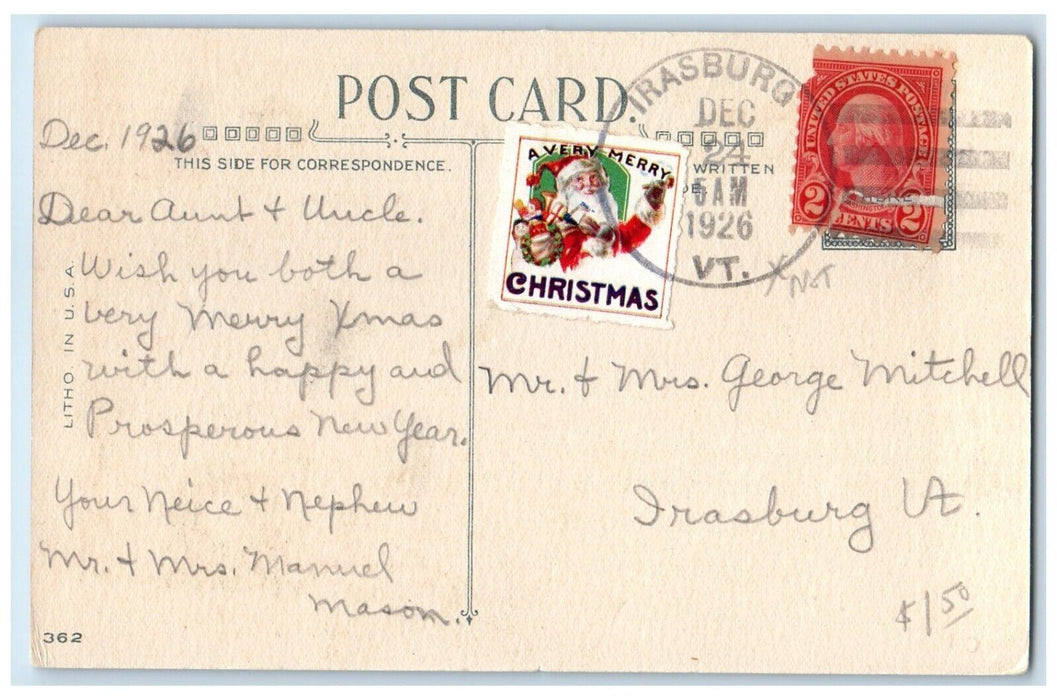 POST CARD.
Dec. 1926
THIS SIDE FOR CORRESPONDENCE.
Dear Aunt & Uncle.
Wish you both a
very Merry Xmas
with a happy and
Prosperous New Year.
Your Neice & Nephew
Mr. & Mrs. Manuel
Mason.
LITHO IN U.S.A.
362
A VERY MERRY
CHRISTMAS
WRITTEN
IRASBURG
DEC
24
5 AM
1926
VT.
UNITED STATES POSTAGE
2 CENTS 2
Mr. & Mrs. George Mitchell
Irasburg Vt.
$1 50